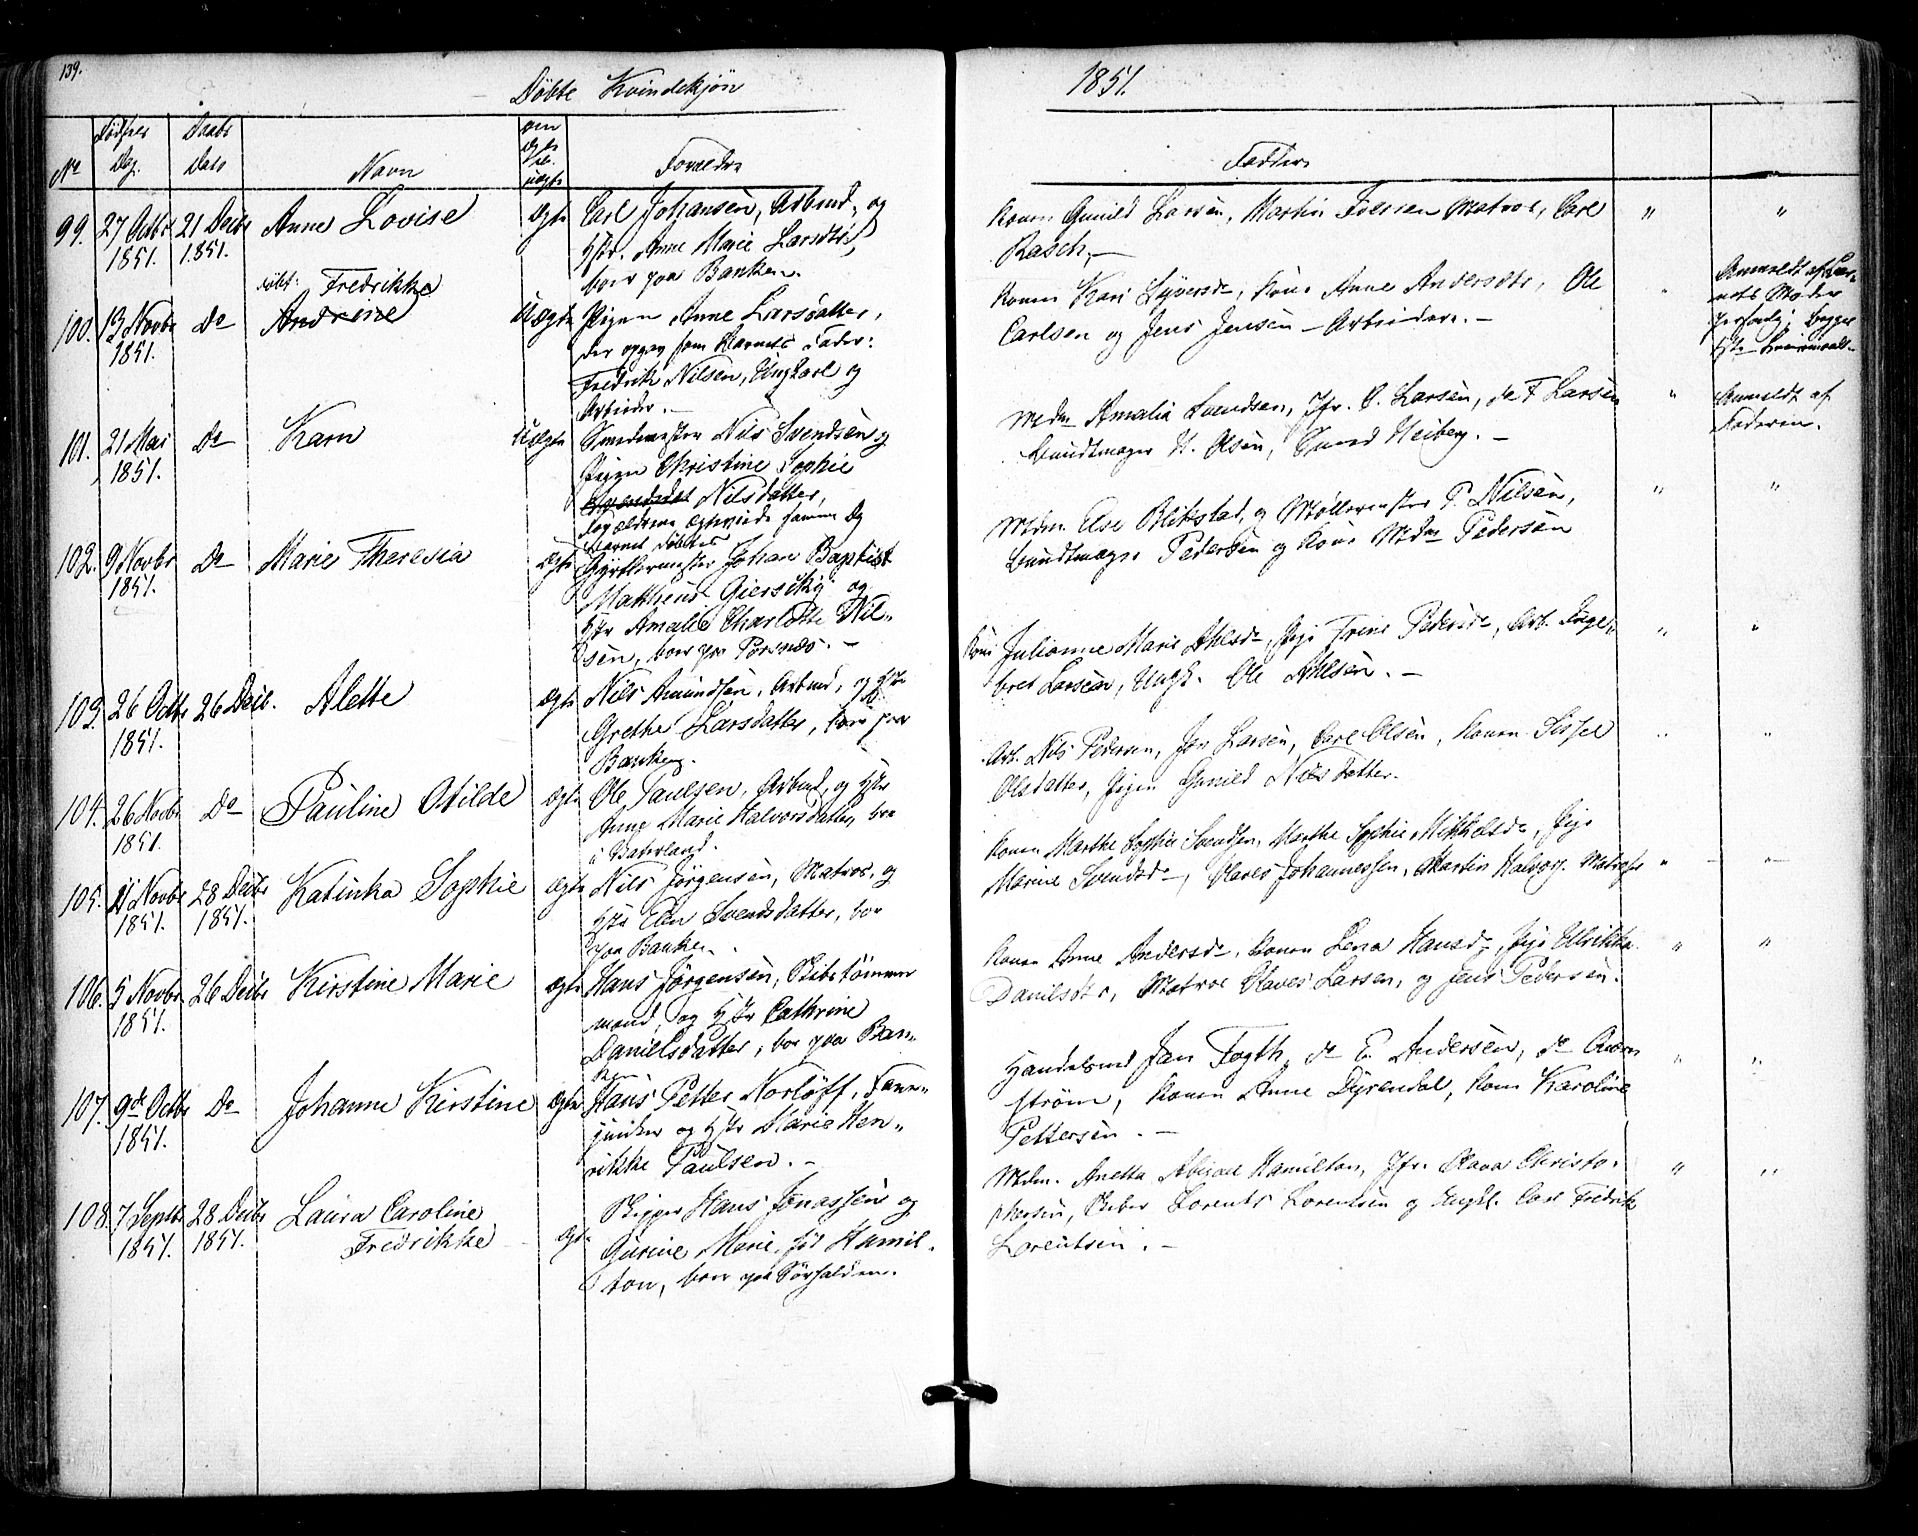 139.
Döbte Kvindekjøn
1851.
No
Födsels Dag.
Daabs Dato
Navn
om ægte el. uægte
Forældre
Faddere
99. 27 Octbr 1851. 21 Decbr 1851. Anne Lovise ægte Carl Johansen, Arbmd, og
Hstr. Anne Marie Larsdtr,
boer paa Banken.
Konen Gunild Larsen, Martin Iversen Matros, Carl
Rasch,-
100. 13 Novbr 1851. Do döbt: Fredrikke
Andrine
Uægte Pigen Anne Larsdatter,
der opgav som Barnets Fader:
Fredrik Nilsen, Ungkarl og
Arbieder.-
Konen Kari Syversdr, Kone Anne Andersdtr, Ole
Carlsen og Jens Jensen - Arbeidere.-
Anmeldt af Bar-
nets Moder
personlig, begges
101. 21 Mai 1851. Do Karn Uægte Smedmester Nils Svendsen og
Pigen Christine Sophie
Svendsdat Nilsdatter,
Forældrene ægteviede samme Dag
Barnet döbtes
Mdm Amalia Svendsen, Jfr. C. Larsen, de F Larsen
Bundtmager H. Olsen, Smed Heiberg.-
Anmeldt af
Faderen.
102. 9 Novbr 1851. Do Marie Theresia ægte Gjörtlermester Johan Baptist
Mathæus Giersikig og
Hstr Amalie Charlotte Nil-
sen, boer paa Porsnæs.-
Mdm. Else Blikstad, og Møllermester P. Nilsen,
Bundtmager Pedersen og Kone Mdm Pedersen
103. 26 Octbr 1851. 26 Decb. Alette ægte Nils Amundsen, Arbmd, og Hstr
Grethe Larsdatter, boer paa
Banken.
Kone Julianne Marie Ahlsdr, Pige Trine Pedersdr, Arb. Inge-
bret Larsen, Ungk. Ole Ahlsen.-
104. 26 Novbr 1851. Do Pauline Otilde ægte Ole Paulsen, Arbmd, og Hstr
Anne Marie Halvorsdatter, boe
i Vaterland.
Arb. Nils Pedersen, Jan Larsen, Carl Olsen, Konen Sissel
Olsdatter, Pigen Gunild Nilsdatter.
105. 11 Novbr 1851. 28 Decbr 1851. Katinka Sophie ægte Nils Jörgensen, Matros, og
Hstr Elen Svendsdatter, boe
paa Banken.
Konen Marthe Sophie Svendsen, Marthe Sophie Mikkelsdr, Pige
Marine Svendsdr, Claves Johannessen, Martin Halvors. Matroser
106. 5 Novbr 1851. 26 Decbr Kirstine Marie ægte Hans Jörgensen, Skibstömmer
mand, og Hstr Cathrine
Danielsdatter, boe paa Ban-
ken
Konen Anne Andersdr, Konen Lena Hansdr, Pige Ulrikka
Danilsdtr, Matros Claves Larsen, og Jens Pedersen.
107. 9de Octbr 1851. Do Johanne Kirstine ægte Hans Petter Norløff, Fane-
junker og Hstr Marie Hen-
rikke Paulsen.-
Handelsmd Jan Fogth, do E. Andersen, do Ahrn
ström, Konen Anne Dyrendal, Kone Karoline
Pettersen.-
108. 7 Septbr 1851. 28 Decbr 1851. Laura Caroline
Fredrikke
ægte Skipper Hans Jonassen og
Gurine Marie, föd Hamil-
ton, boer paa Sörhalden.
Mdm. Anetta Abigael Hamilton, Jfr. Olava Christo-
phersen, Skiber Lorents Lorentsen og Ungk. Carl Fredrik
Lorentsen.-